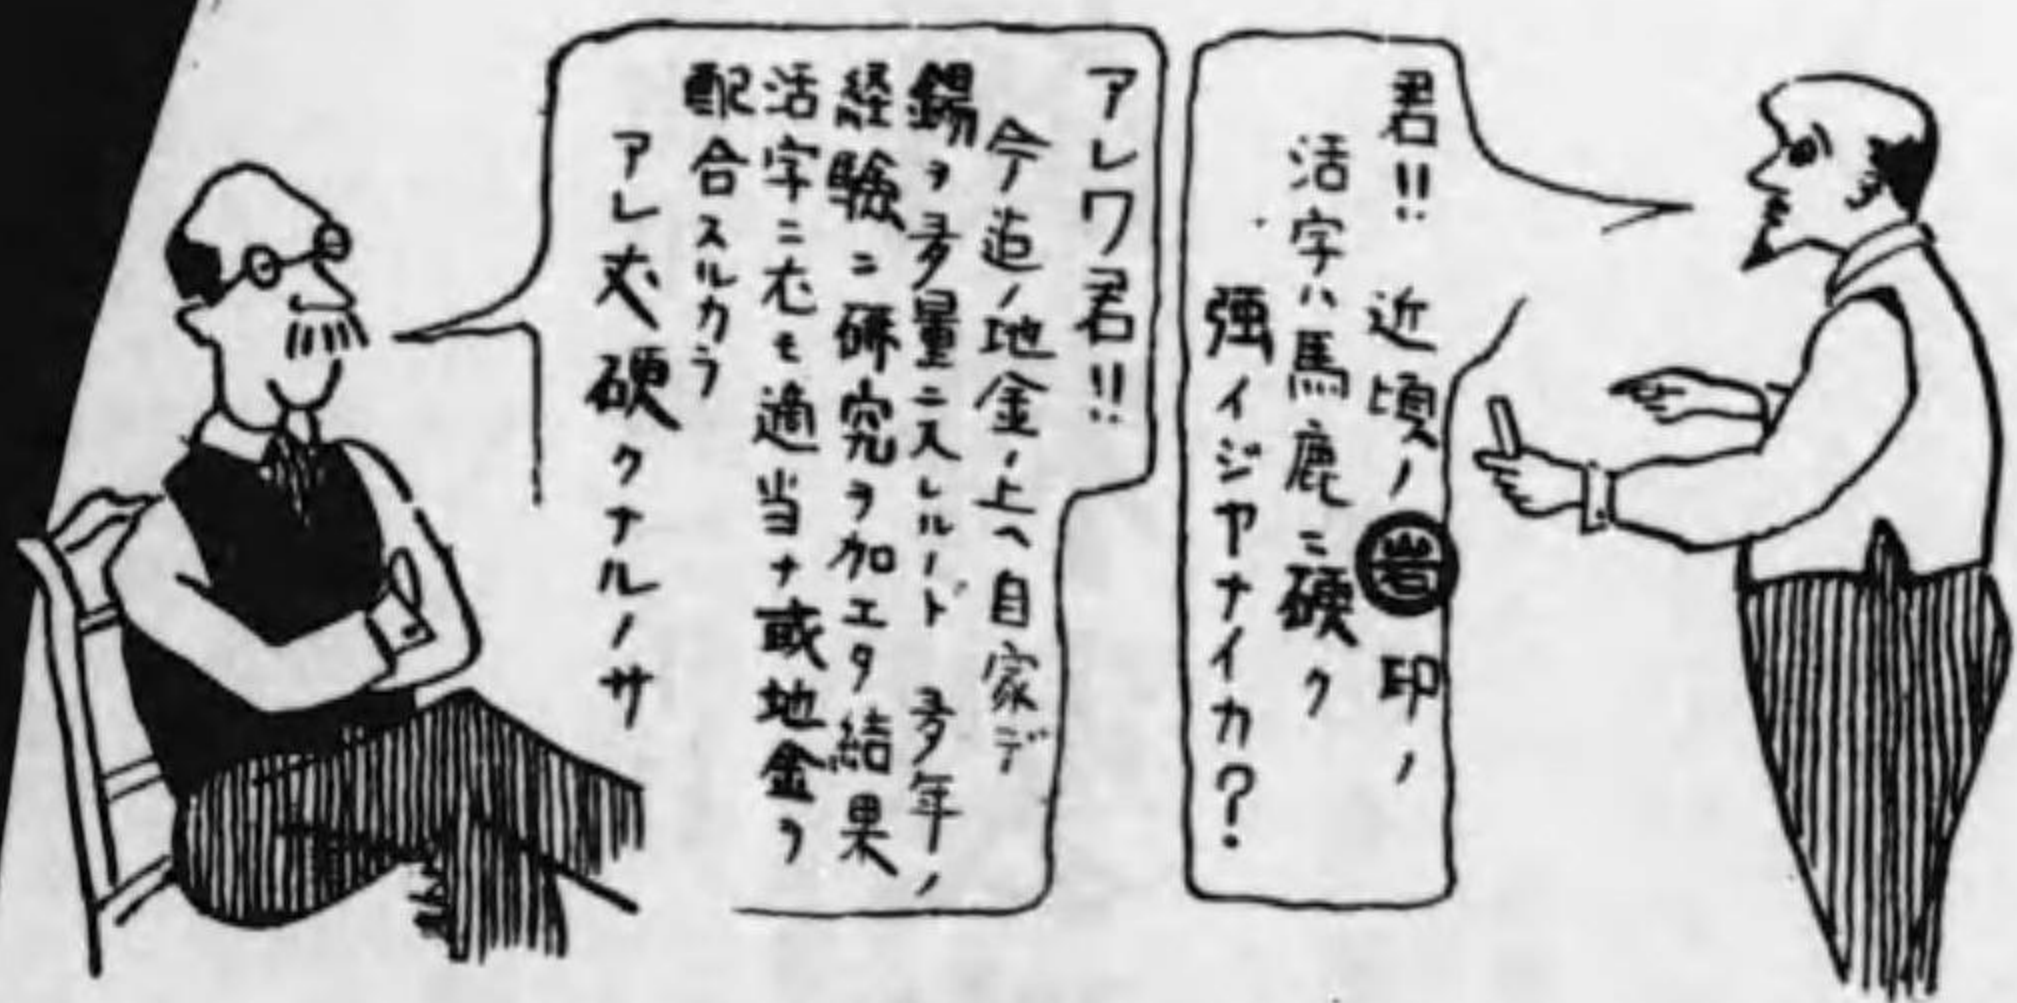 君!! 近頃ノ岩印ノ
活字ハ馬鹿ニ硬ク
強イジヤナイカ?
アレワ君!!
今迠ノ地金ノ上ヘ自家デ
錫ヲ多量ニスルノト 多年ノ
経験ニ研究ヲ加エタ結果
活字ニ尤モ適当ナ或地金ヲ
配合スルカラ
アレ丈硬クナルノサ